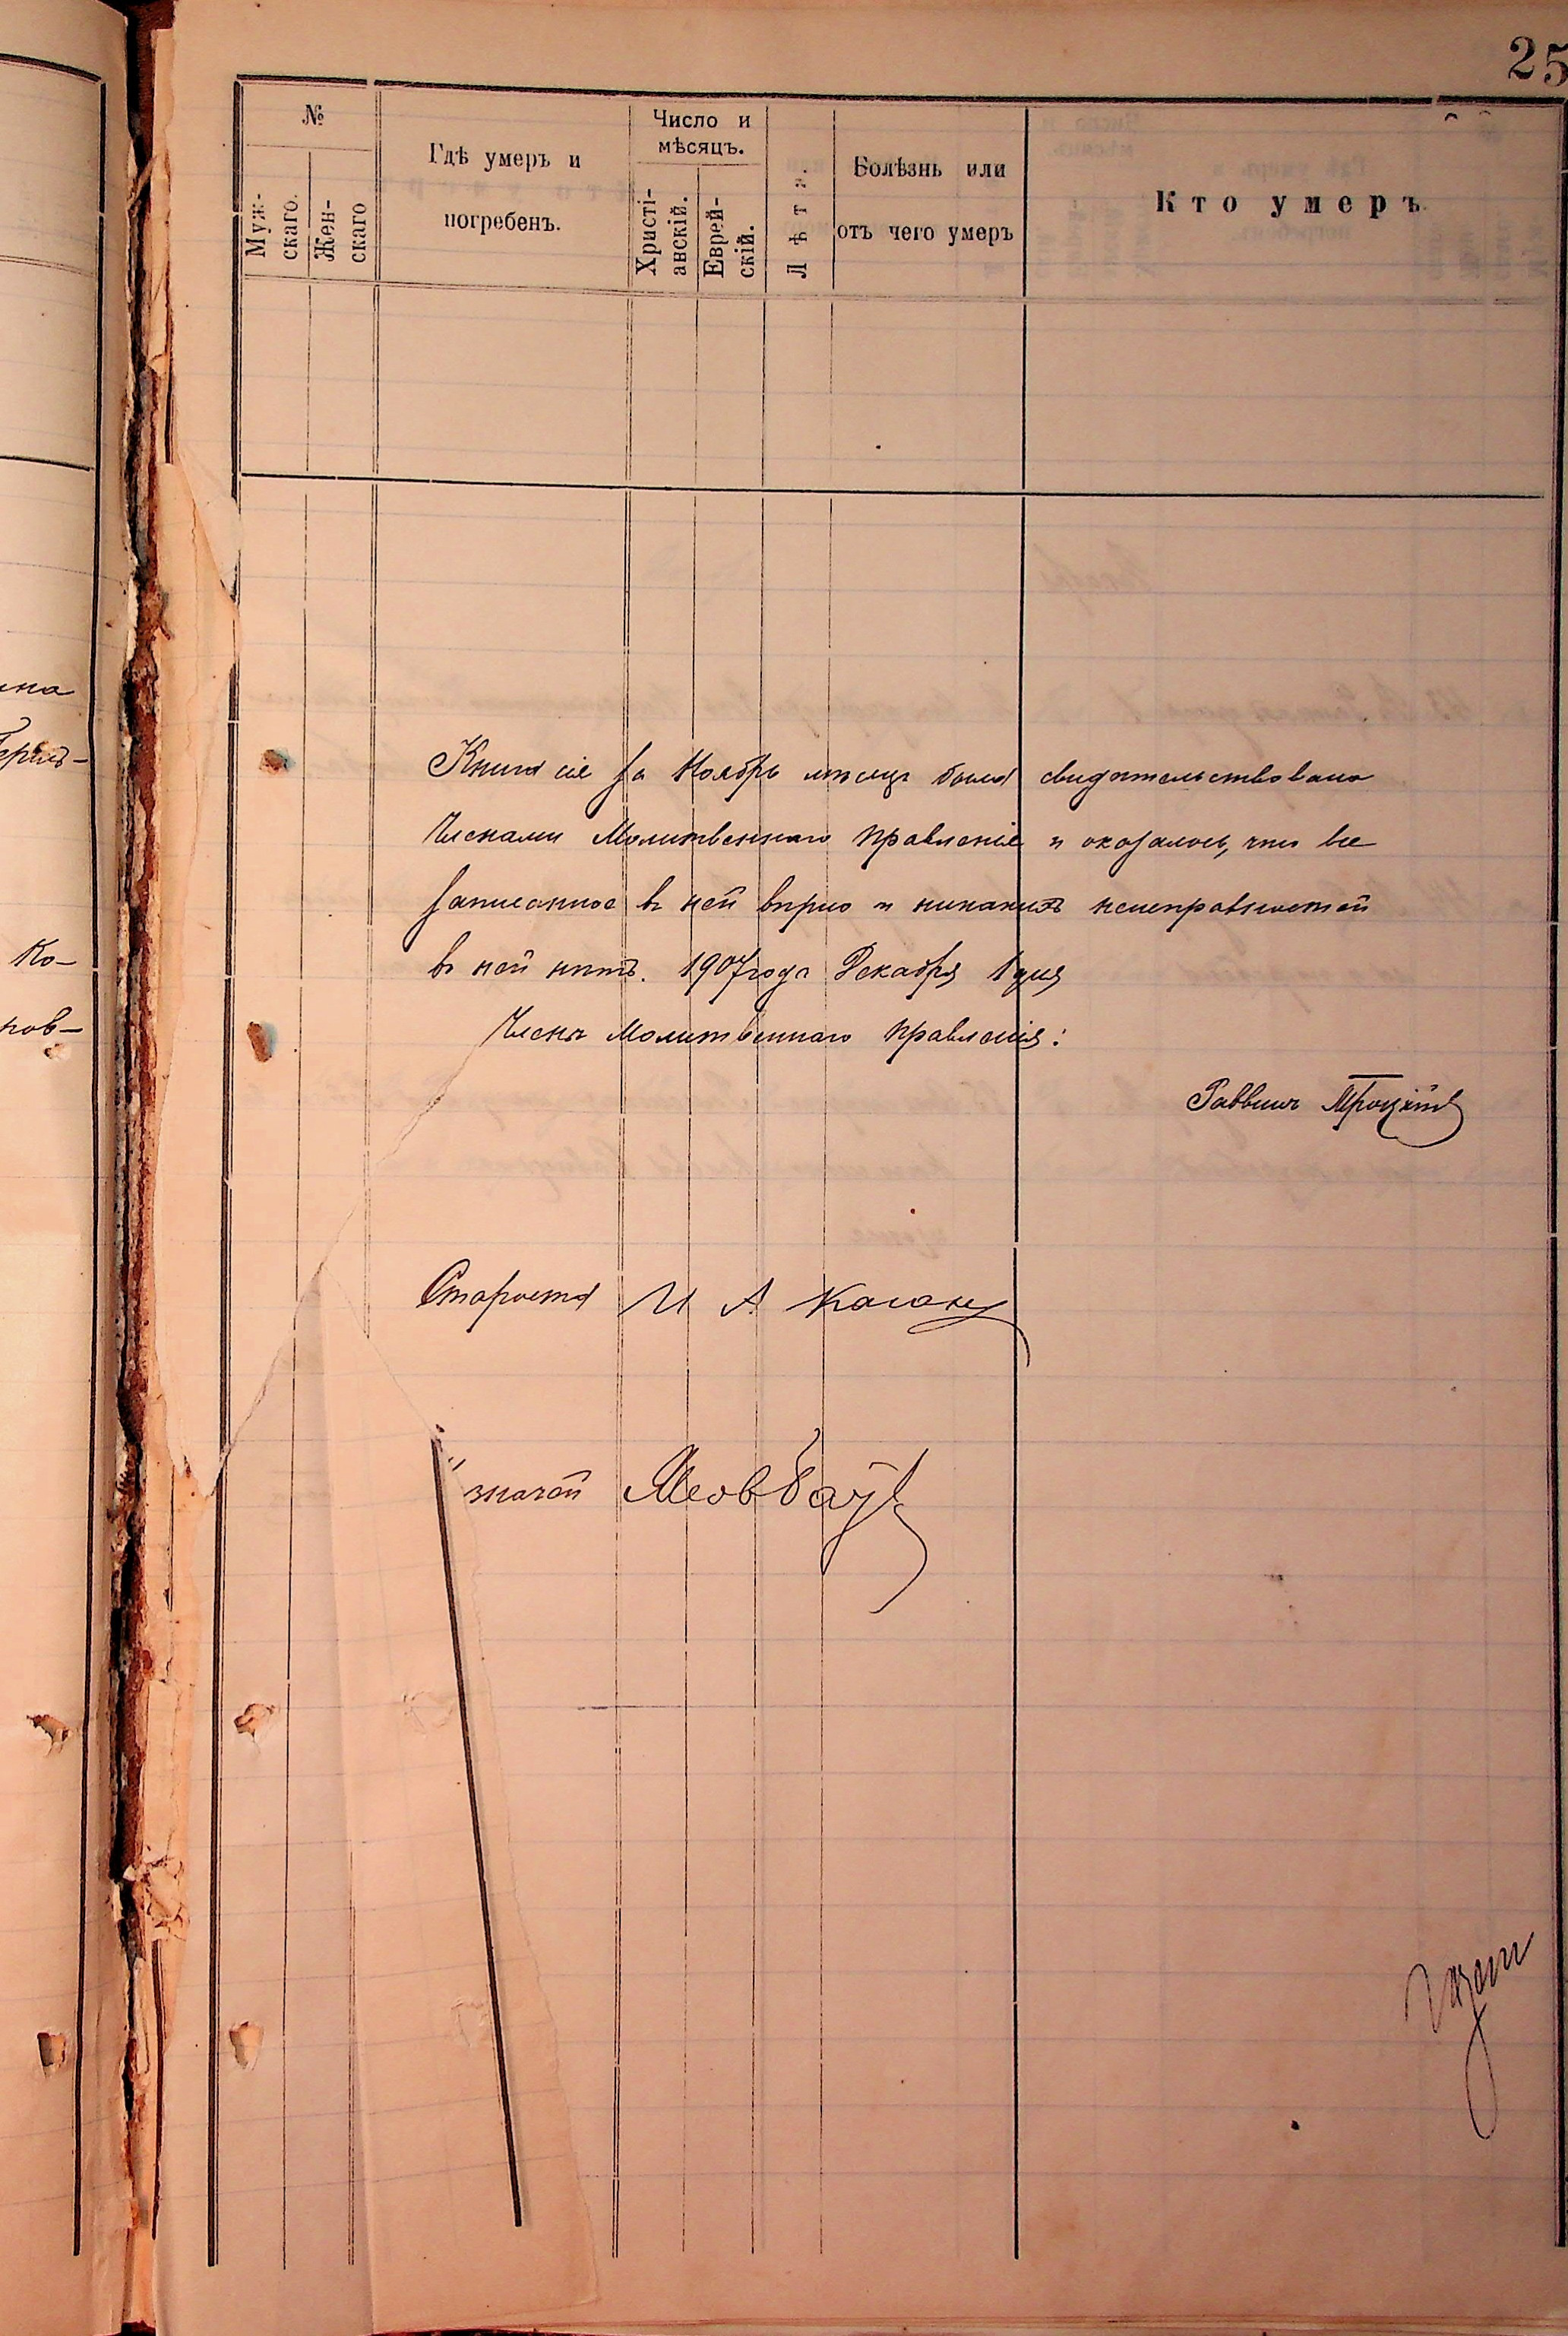 25
№
Муж-
скаго.
Жен-
скаго
Гдѣ умеръ и
погребенъ.
Число и
мѣсяцъ.
Христі-
анскій.
Еврей-
скій.
Лѣта.
Болѣзнь или
отъ чего умеръ
Кто умеръ.
Книга сія за Ноябрь мѣсяцъ была свидѣтельствована
Членами Молитвеннаго Правленія и оказалось, что все
записанное въ ней вѣрно и никакихъ неисправностей
въ ней нѣтъ. 1907 года Декабря 1 дня
Члены Молитвеннаго Правленія:
Раввинъ
Староста И А Каганъ
значей
на
Ко-
нов-